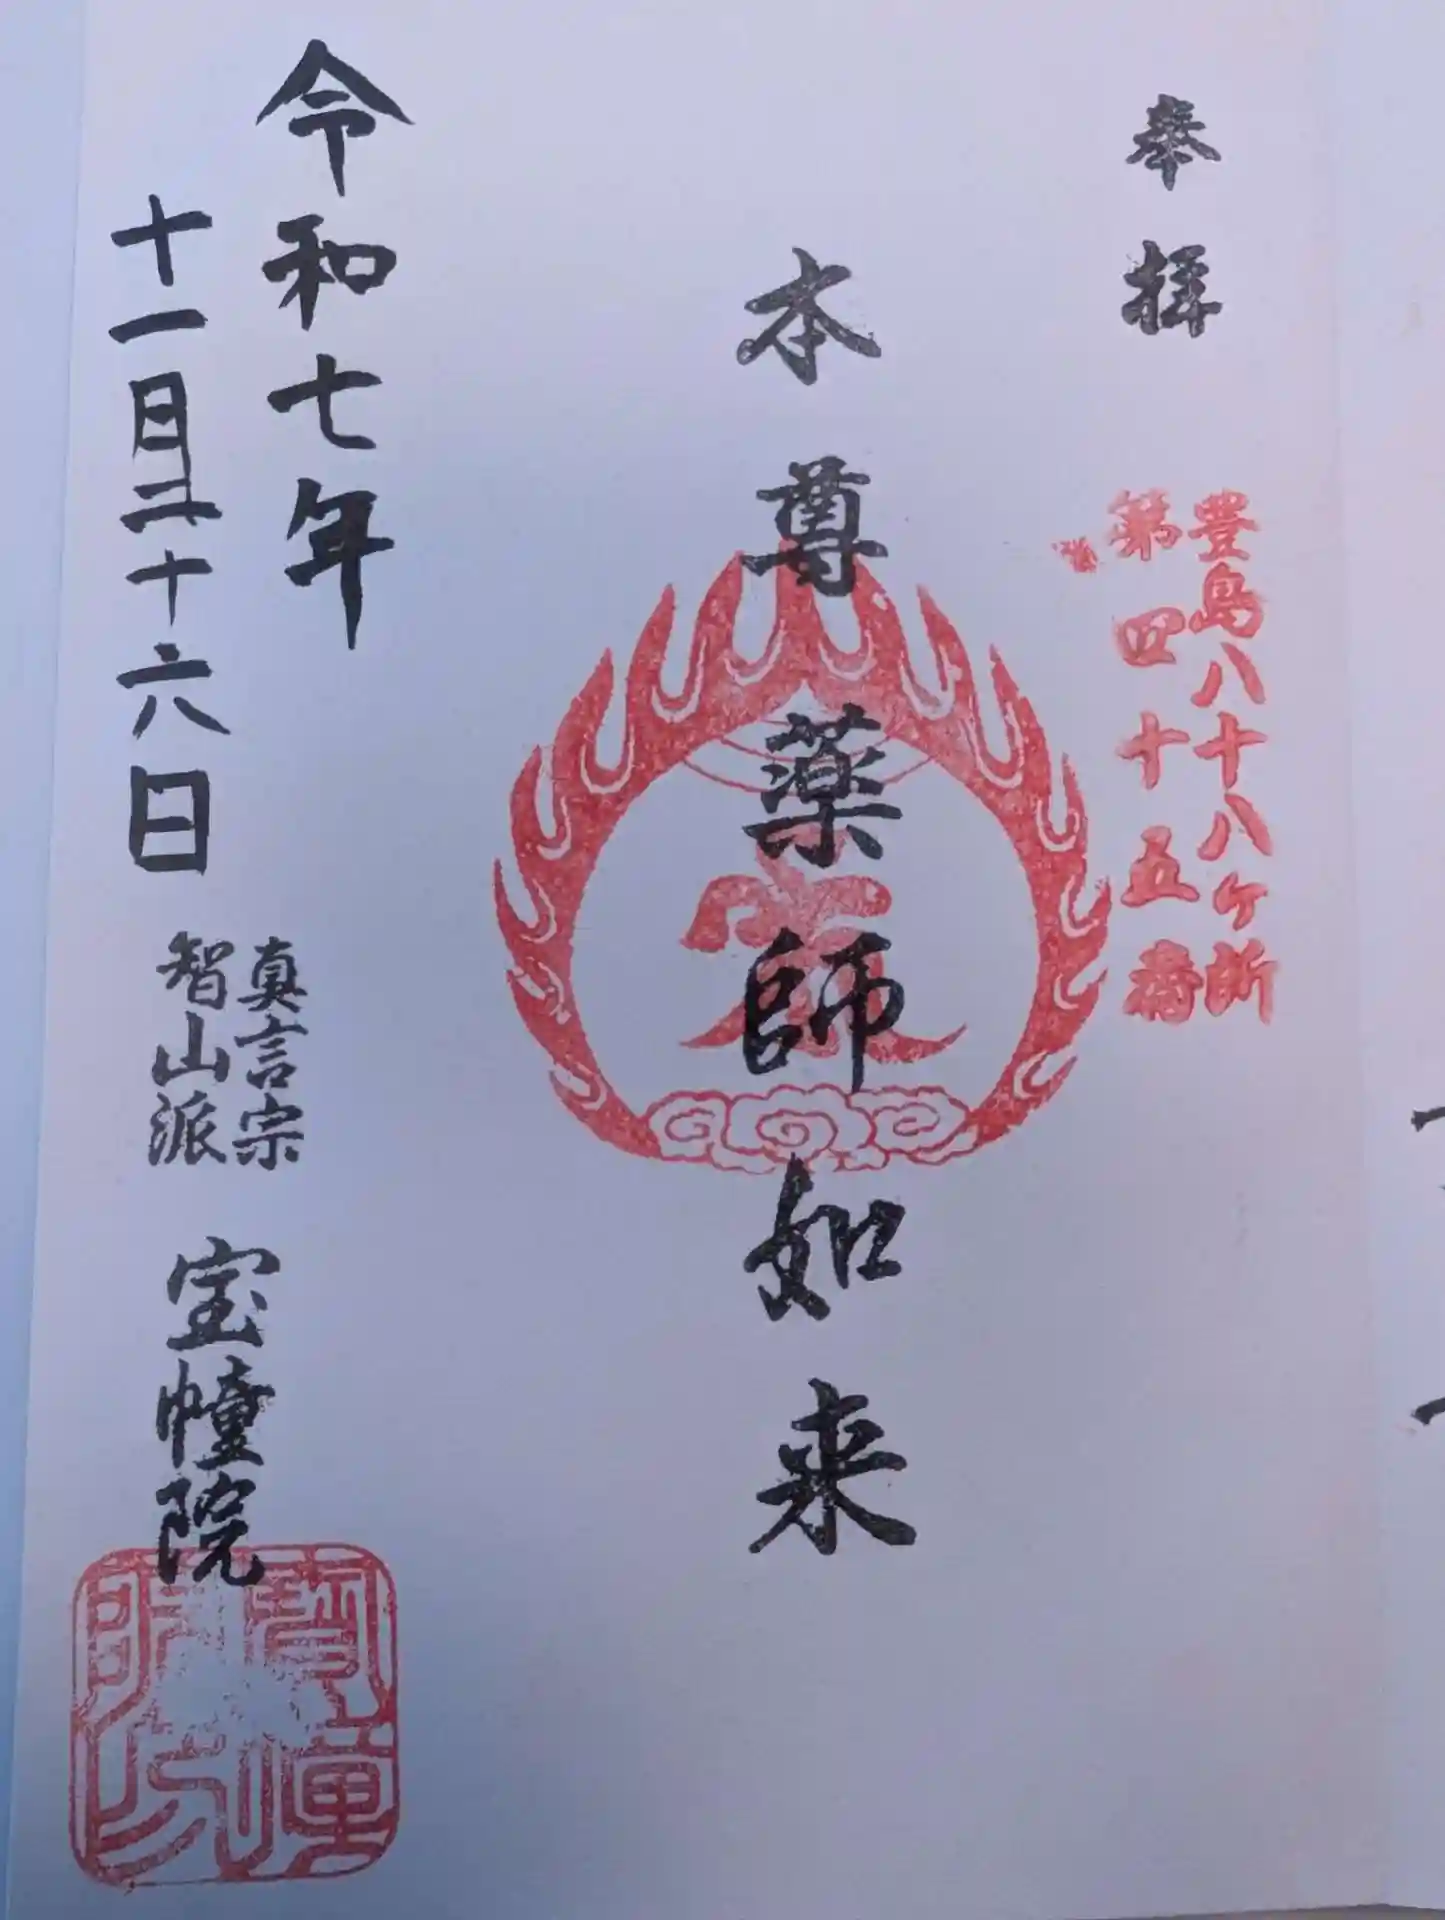 奉拝
豊島八十八ヶ所
第四十五番
本尊薬師如来
令和七年
十一月二十六日
真言宗
智山派
宝幢院
寶幢
院